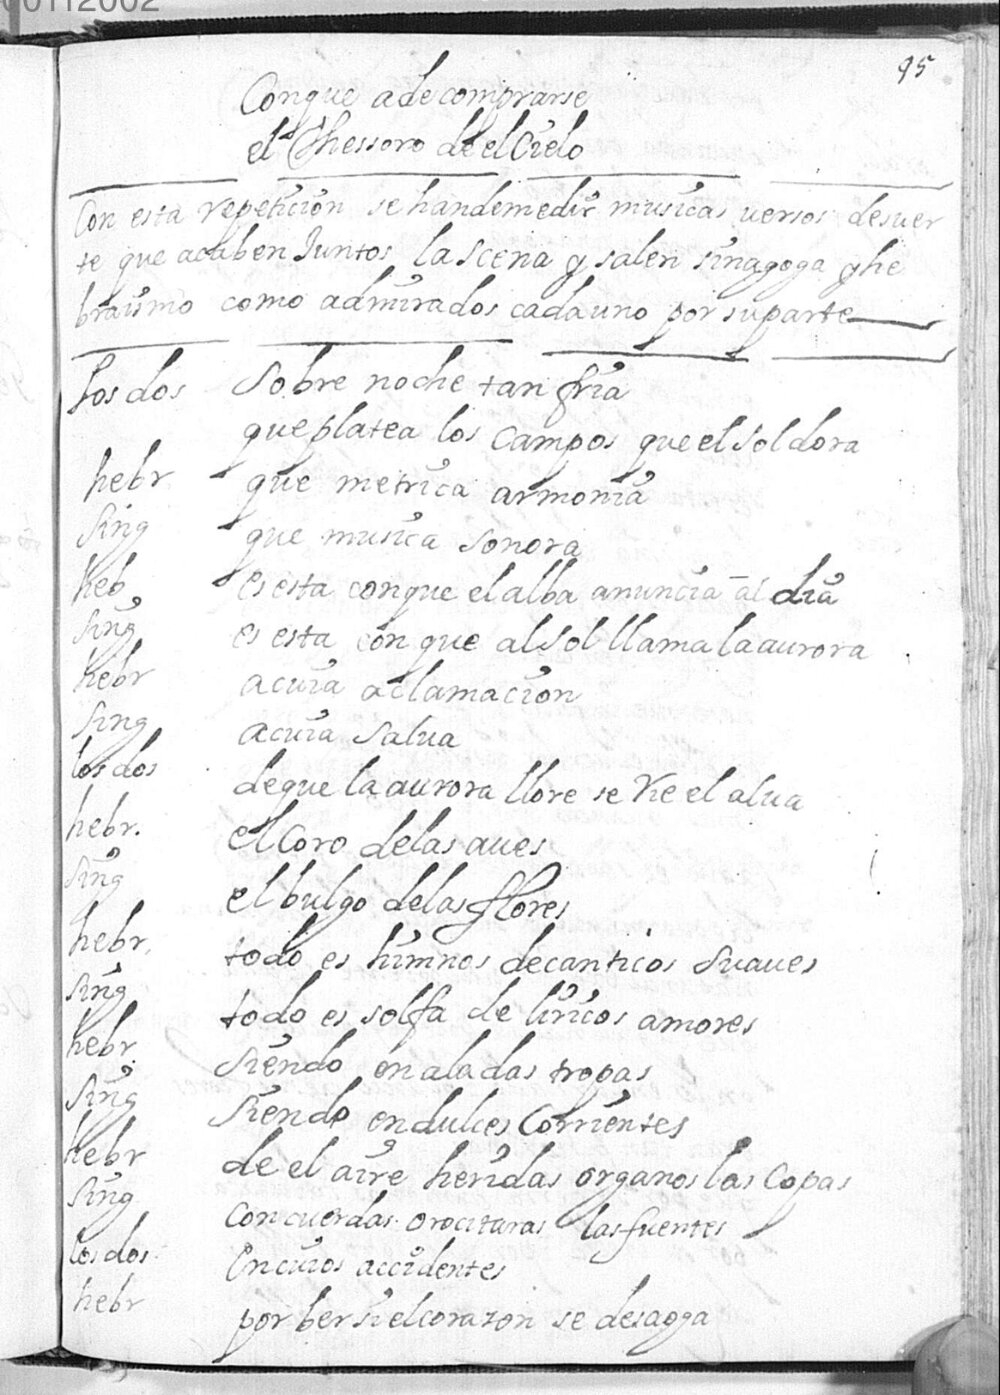 00112002
95
Conque a de comprarse
el Thessoro de el Cielo
Con esta repeticion se han de medir musicas versos de suer
te que acaben Juntos la scena y salen sinagoga y he
braismo como admirados cada uno por su parte
los dos Sobre noche tan fria
que platea los Campos que el Sol dora
hebr que metrica armonia
Sing que musica sonora
heb es esta conque el alba anuncia al dia
Sing es esta con que al Sol llama la aurora
hebr a cuia aclamacion
Sing a cuia Salua
los dos de que la aurora llore se Rie el alua
hebr. el Coro de las aues
Sing el bulgo de las flores
hebr. todo es himnos de canticos Suaues
Sing todo es solfa de liricos amores
hebr. Siendo en aladas tropas
Sing Siendo en dulces Corrientes
hebr de el aire heridas organos las Copas
Sing Con cuerdas las fuentes
los dos En cuios accidentes
hebr por ber si el corazon se desaoga